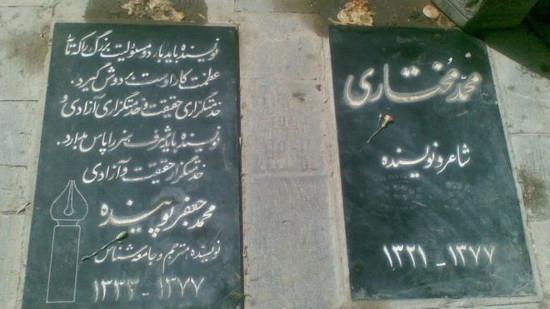 محمد مختاری
شاعر و نویسنده
۱۳۲۱ - ۱۳۷۷
نویسنده باید بار دو مسئولیت بزرگ را که
عظمت کار اوست بر دوش گیرد.
خدمتگزاری حقیقت و خدمتگزاری آزادی و
نویسنده باید شرف هنر را پاس بدارد.
خدمتگزار حقیقت و آزادی
محمد جعفر پوینده
نویسنده، مترجم و جامعه شناس
۱۳۳۳ - ۱۳۷۷